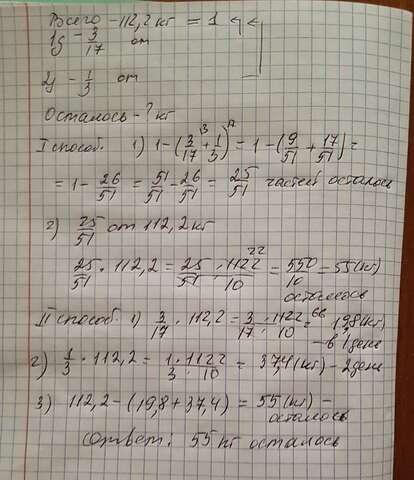 Всего - 112,2 кг = 1
1д - 3/17 от
2д - 1/3 от
Осталось - ? кг
I способ. 1) 1 - (3/17 + 1/3) = 1 - (9/51 + 17/51) =
= 1 - 26/51 = 51/51 - 26/51 = 25/51 частей осталось
2) 25/51 от 112,2 кг
25/51 · 112,2 = 25 · 1122 22/51 · 10 = 550/10 = 55 (кг)
осталось
II способ. 1) 3/17 · 112,2 = 3 · 1122 66/17 · 10 = 19,8 (кг)
- в 1 день
2) 1/3 · 112,2 = 1 · 1122/3 · 10 = 37,4 (кг) - 2 день
3) 112,2 - (19,8 + 37,4) = 55 (кг) -
осталось
Ответ: 55 кг осталось